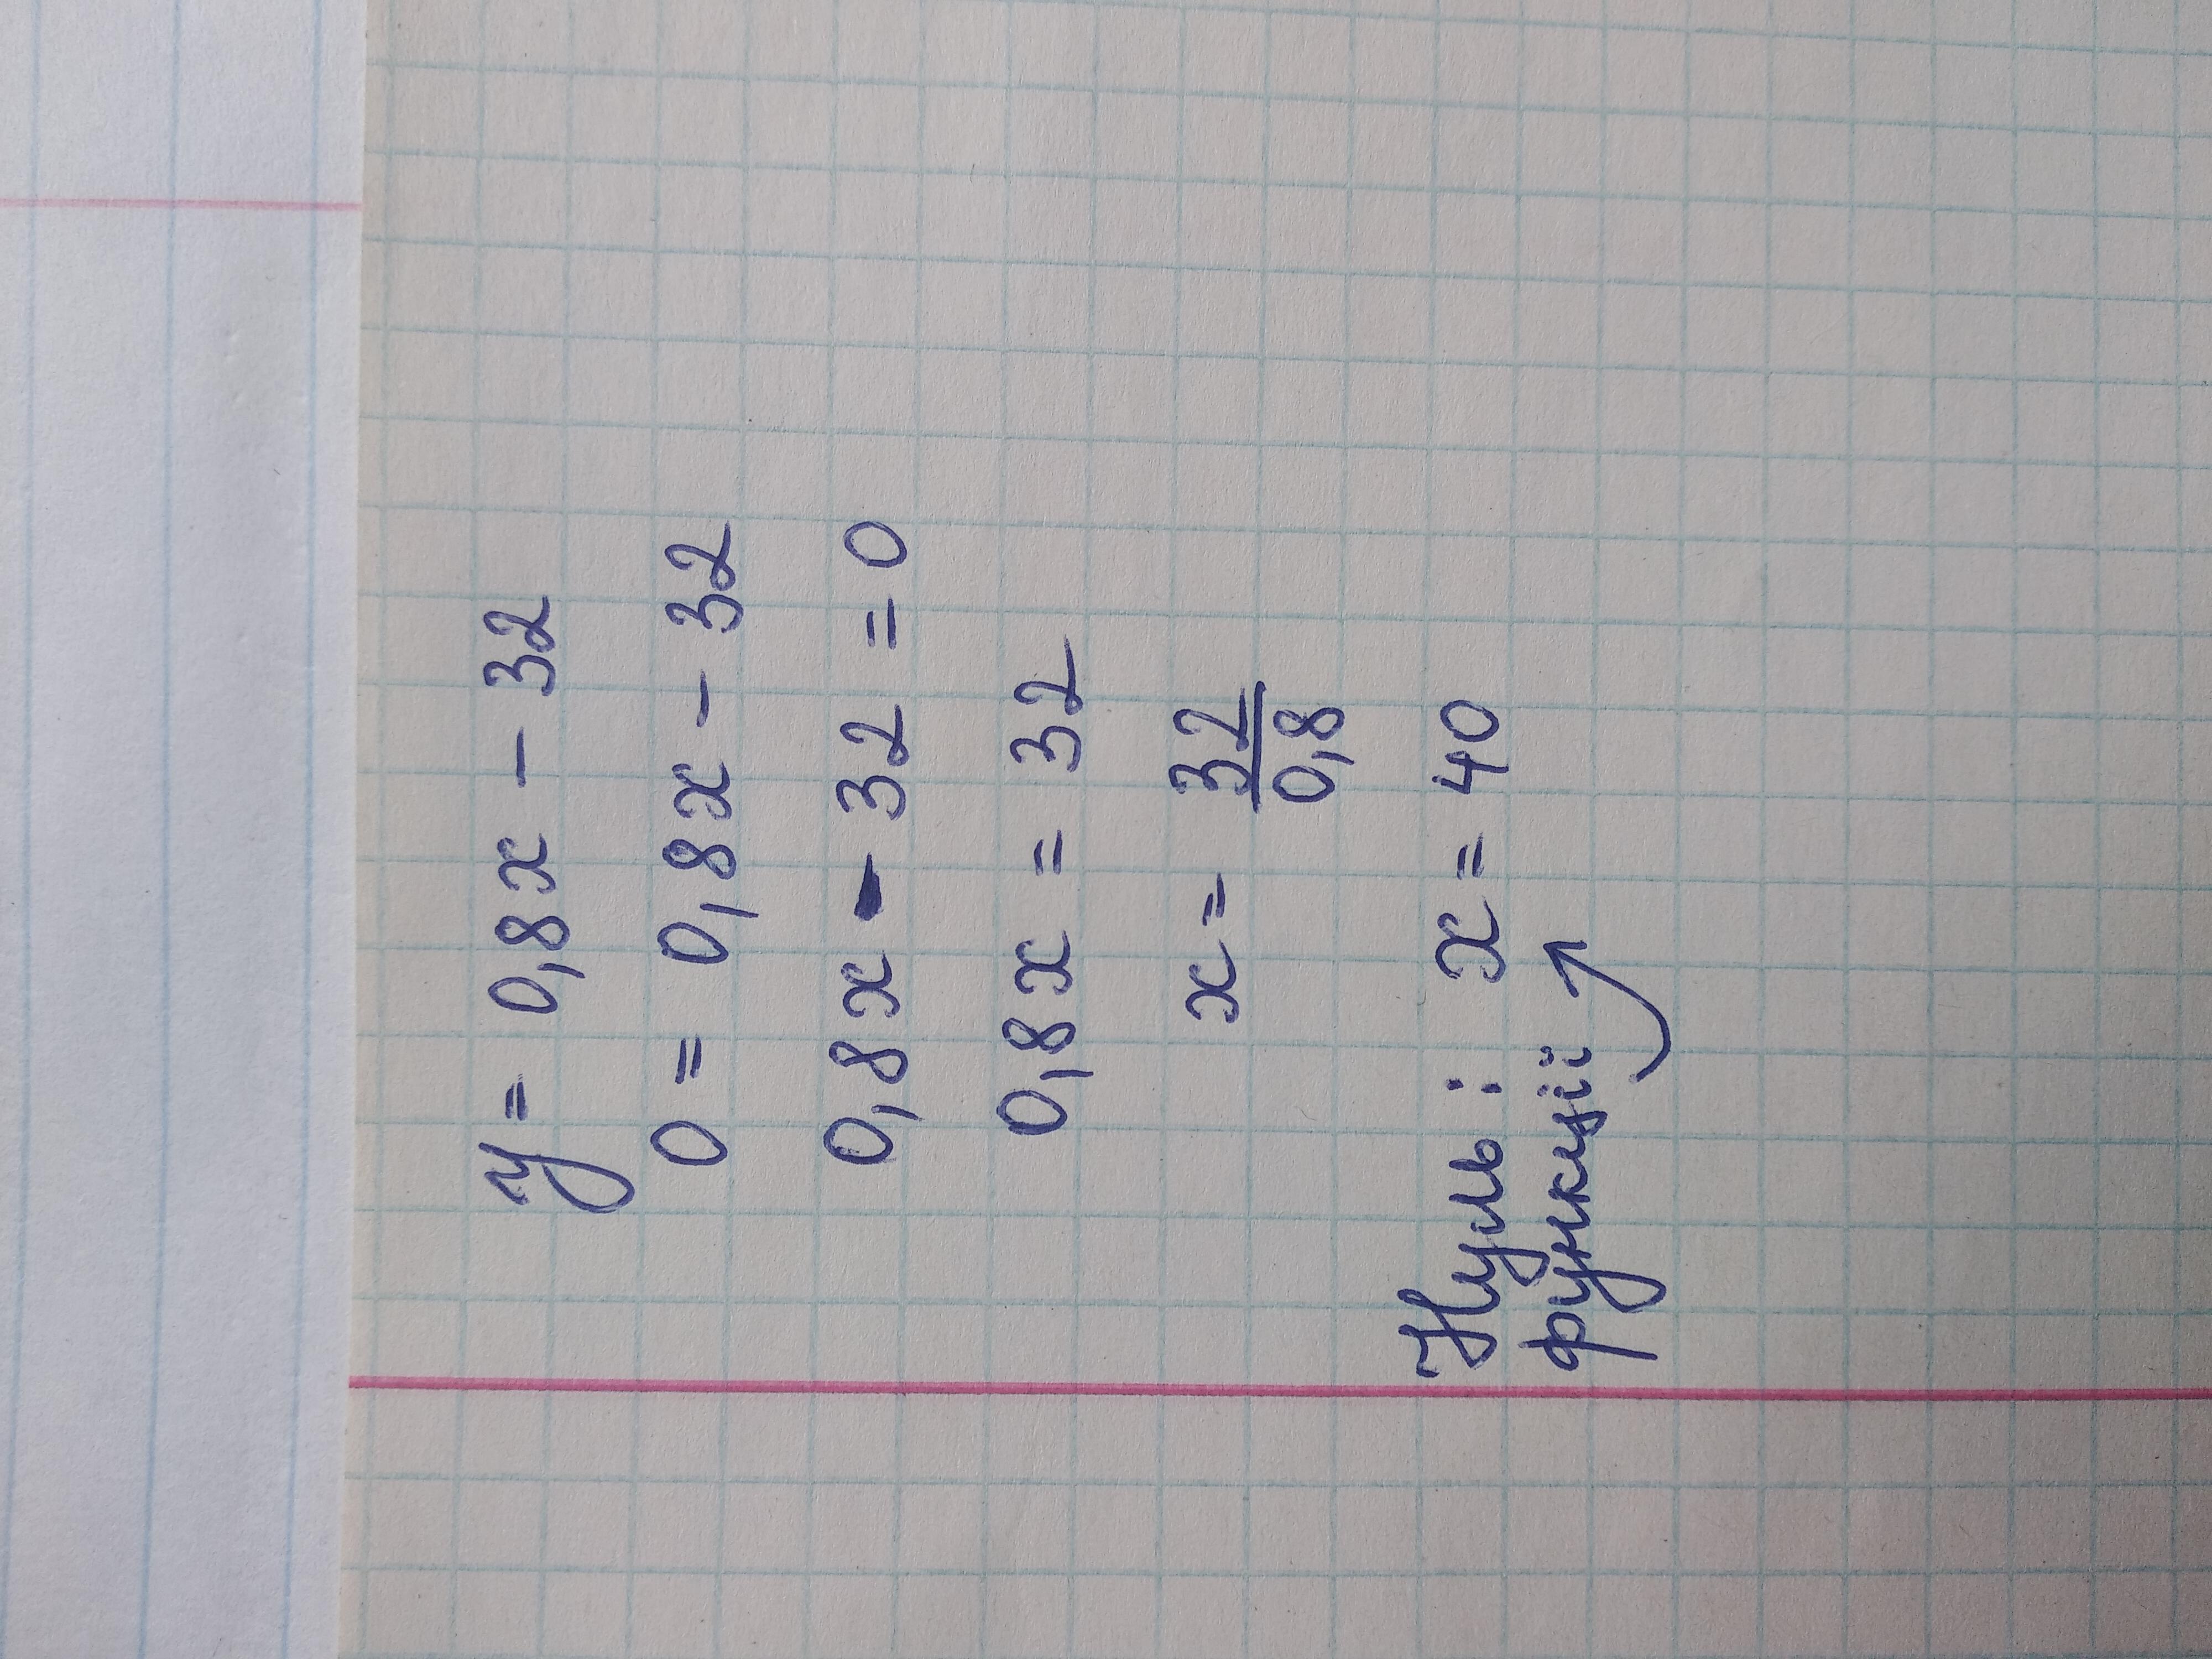 y = 0,8x - 32
0 = 0,8x - 32
0,8x - 32 = 0
0,8x = 32
x = 32/0,8
Нуль: x = 40
функції